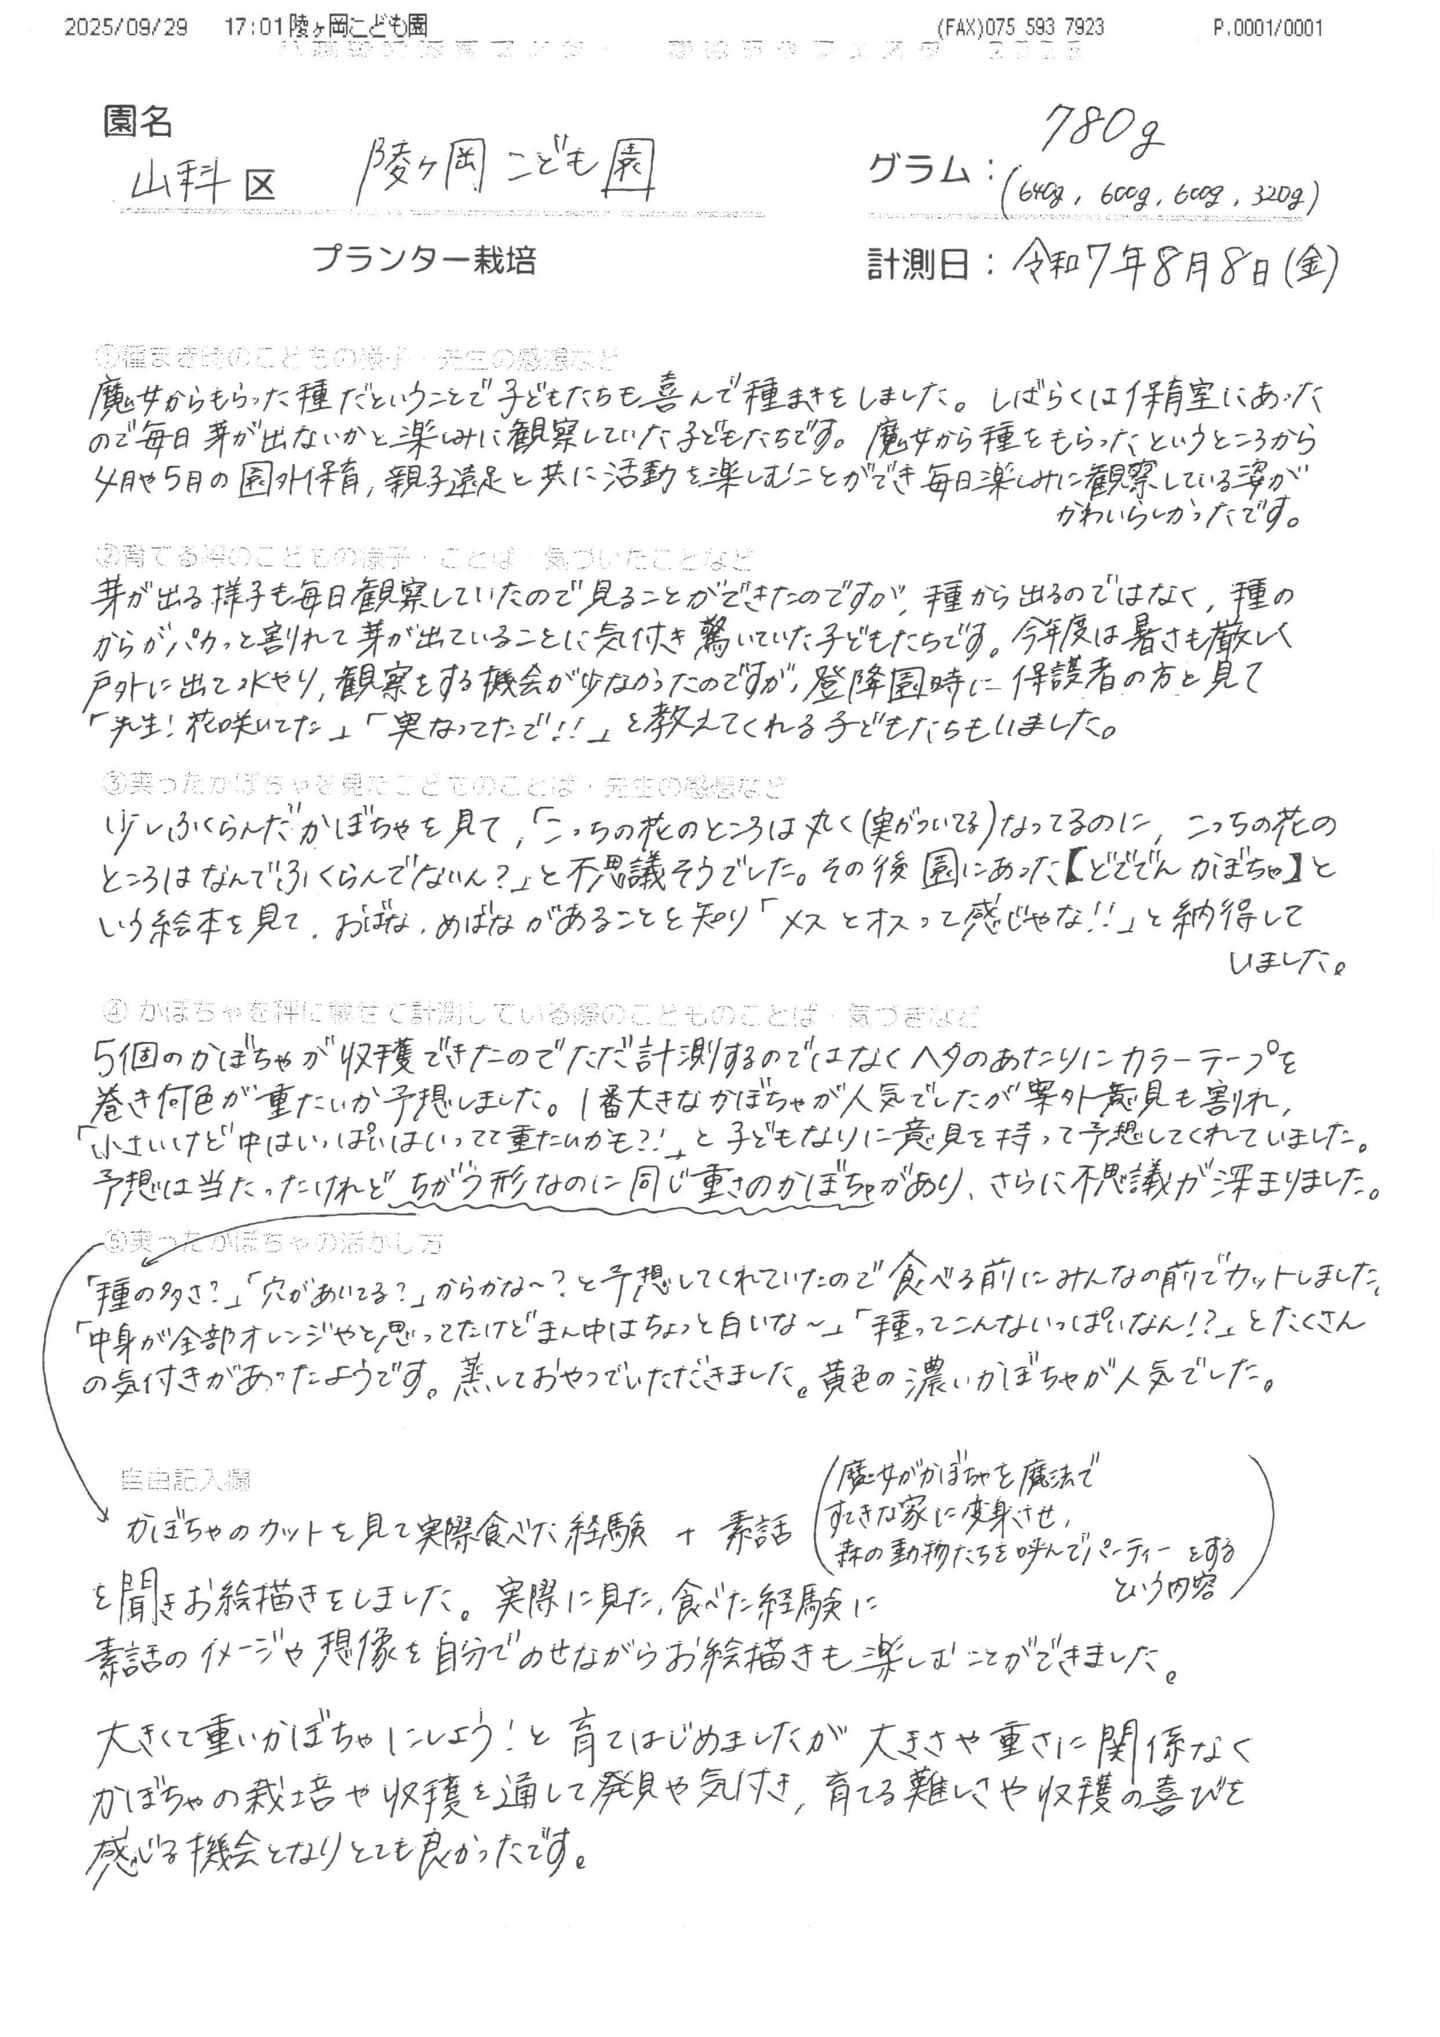 2025/09/29 17:01 陵ヶ岡こども園 (FAX)075 593 7923 P.0001/0001
園名
山科区 陵ヶ岡こども園
780g
グラム：(640g, 600g, 600g, 320g)
プランター栽培
計測日：令和7年8月8日(金)
①種まき時のこどもの様子・先生の感想など
魔女からもらった種だということで子どもたちも喜んで種まきをしました。しばらくは保育室にあった
ので毎日芽が出ないかと楽しみに観察していた子どもたちです。魔女から種をもらったというところから
4月や5月の園外保育,親子遠足と共に活動を楽しむことができ毎日楽しみに観察している姿が
かわいらしかったです。
②育てる際のこどもの様子・ことば・気づいたことなど
芽が出る様子も毎日観察していたので見ることができたのですが,種から出るのではなく,種の
からがパカっと割れて芽が出ていることに気付き驚いていた子どもたちです。今年度は暑さも厳しく
戸外に出て水やり,観察をする機会が少なかったのですが,登降園時に保護者の方と見て
「先生!花咲いてた」「実なってたで!!」と教えてくれる子どもたちもいました。
③実ったかぼちゃを見たこどものことば・先生の感想など
少しふくらんだかぼちゃを見て,「こっちの花のところは丸く(実がついてる)なってるのに,こっちの花の
ところはなんでふくらんでないん?」と不思議そうでした。その後園にあった【どででん かぼちゃ】と
いう絵本を見て,おばな,めばながあることを知り「メスとオスって感じやな!!」と納得して
いました。
④かぼちゃを秤に載せて計測している際のこどものことば・気づきなど
5個のかぼちゃが収穫できたのでただ計測するのではなくヘタのあたりにカラーテープを
巻き何色が重たいか予想しました。1番大きなかぼちゃが人気でしたが案外意見も割れ,
「小さいけど中はいっぱいはいってて重たいかも?!」と子どもなりに意見を持って予想してくれていました。
予想は当たったけれどちがう形なのに同じ重さのかぼちゃがあり、さらに不思議が深まりました。
⑤実ったかぼちゃの活かし方
「種の多さ?」「穴があいてる?」からかな〜?と予想してくれていたので食べる前にみんなの前でカットしました。
「中身が全部オレンジやと思ってたけどまん中はちょっと白いな〜」「種ってこんないっぱいなん!?」とたくさん
の気付きがあったようです。蒸しておやつでいただきました。黄色の濃いかぼちゃが人気でした。
自由記入欄
かぼちゃのカットを見て実際食べた経験 + 素話
(魔女がかぼちゃを魔法で
すてきな家に変身させ,
森の動物たちを呼んでパーティーをする
という内容)
を聞きお絵描きをしました。実際に見た,食べた経験に
素話のイメージや想像を自分でのせながらお絵描きも楽しむことができました。
大きくて重いかぼちゃにしよう!と育てはじめましたが大きさや重さに関係なく
かぼちゃの栽培や収穫を通して発見や気付き,育てる難しさや収穫の喜びを
感じる機会となりとても良かったです。